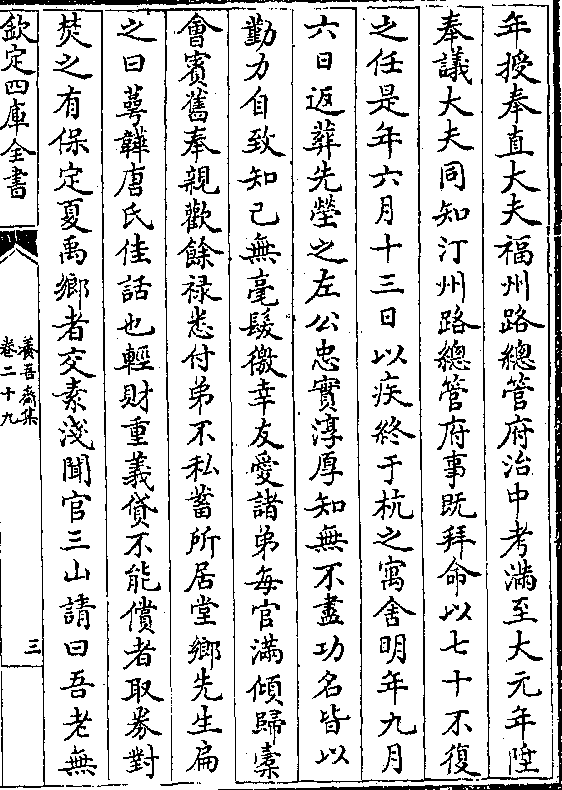 年授奉直大夫福州路總管府治中考滿至大元年陞
奉議大夫同知汀州路總管府事既拜命以七十不復
之任是年六月十三日以疾終于杭之寓舍明年九月
六日返葬先塋之左公忠實淳厚知無不盡功名皆以
勤力自致知己無毫髮徼幸友愛諸弟每官滿傾歸橐
會賓舊奉親歡餘禄悉付弟不私蓄所居堂鄉先生扁
之曰萼韡唐氏佳話也輕財重義貸不能償者取券對
焚之有保定夏禹鄉者交素淺聞官三山請曰吾老無
欽定四庫全書
養吾齋集
卷二十九
三